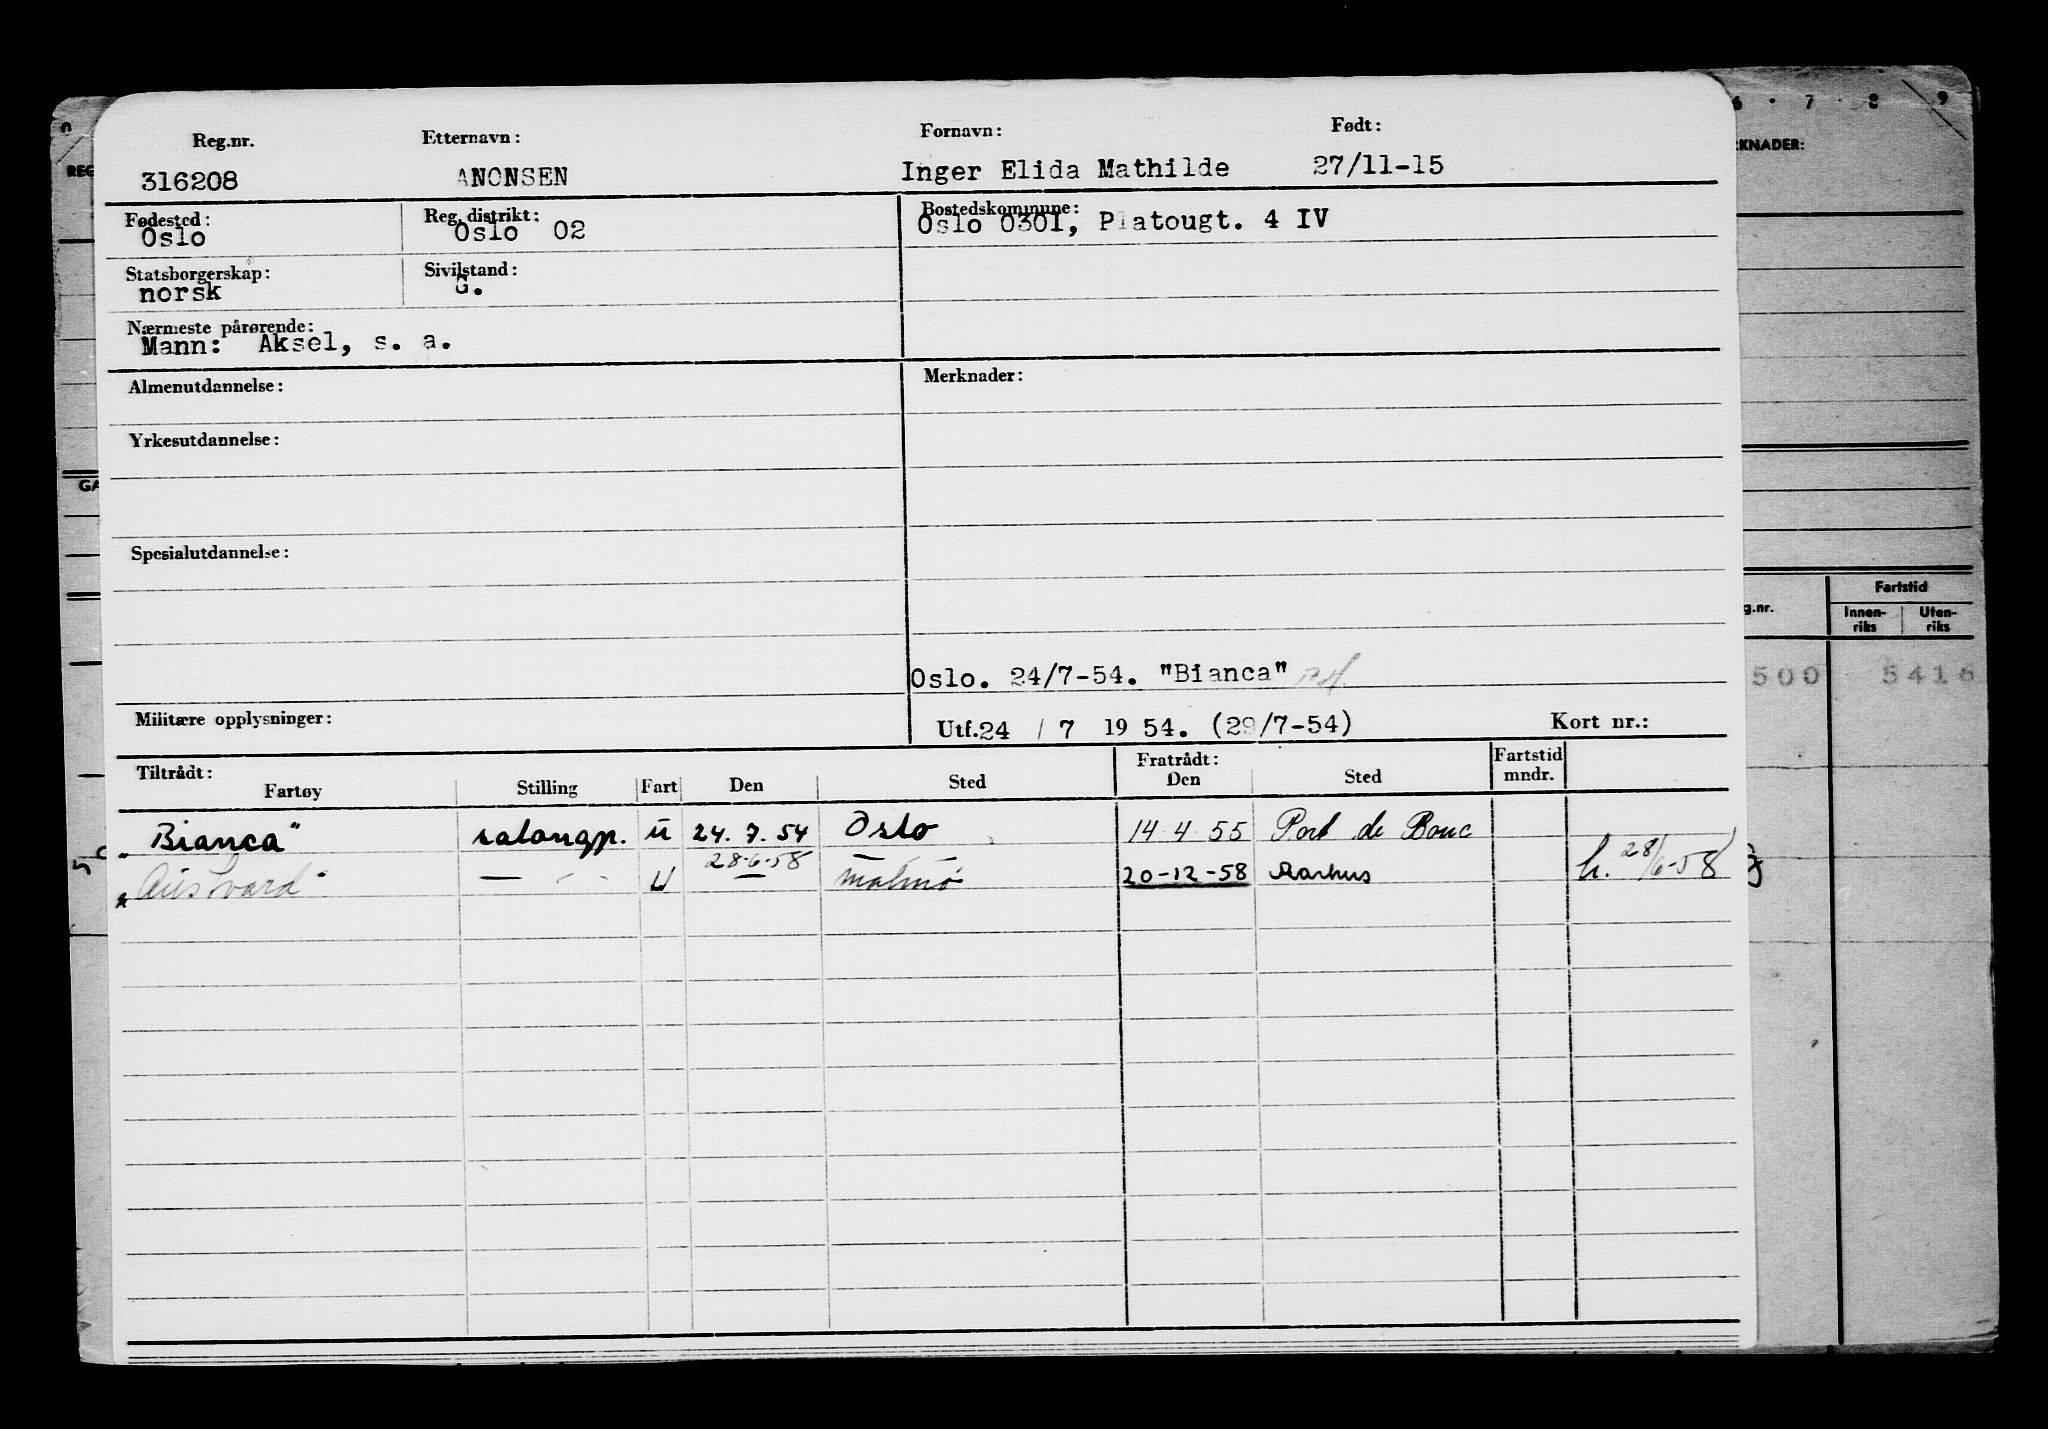 Reg.nr. Etternavn: Fornavn: Født:
316208 ANONSEN Inger Elida Mathilde 27/11-15
Fødested: Reg. distrikt: Bostedskommune:
Oslo Oslo 02 Oslo 0301, Platougt. 4 IV
Statsborgerskap: Sivilstand:
norsk G.
Nærmeste pårørende:
Mann: Aksel, s. a.
Almenutdannelse: Merknader:
Yrkesutdannelse:
Spesialutdannelse:
Oslo. 24/7-54. "Bianca"
Militære opplysninger: Utf. 24 / 7 19 54. (29/7-54) Kort nr.:
Tiltrådt: Fratrådt: Fartstid mndr.
Fartøy Stilling Fart Den Sted Den Sted
"Bianca" salongp. u 24.7.54 Oslo 14 4 55 Port de Bouc
28-6-58
"Austvard" — " — U — Malmø 20-12-58 Aarhus h. 28/6-58
6 . 7 . 8 . 9
RKNADER:
REG
GA
g.nr. Fartstid
Innen-riks Uten-riks
500 5416